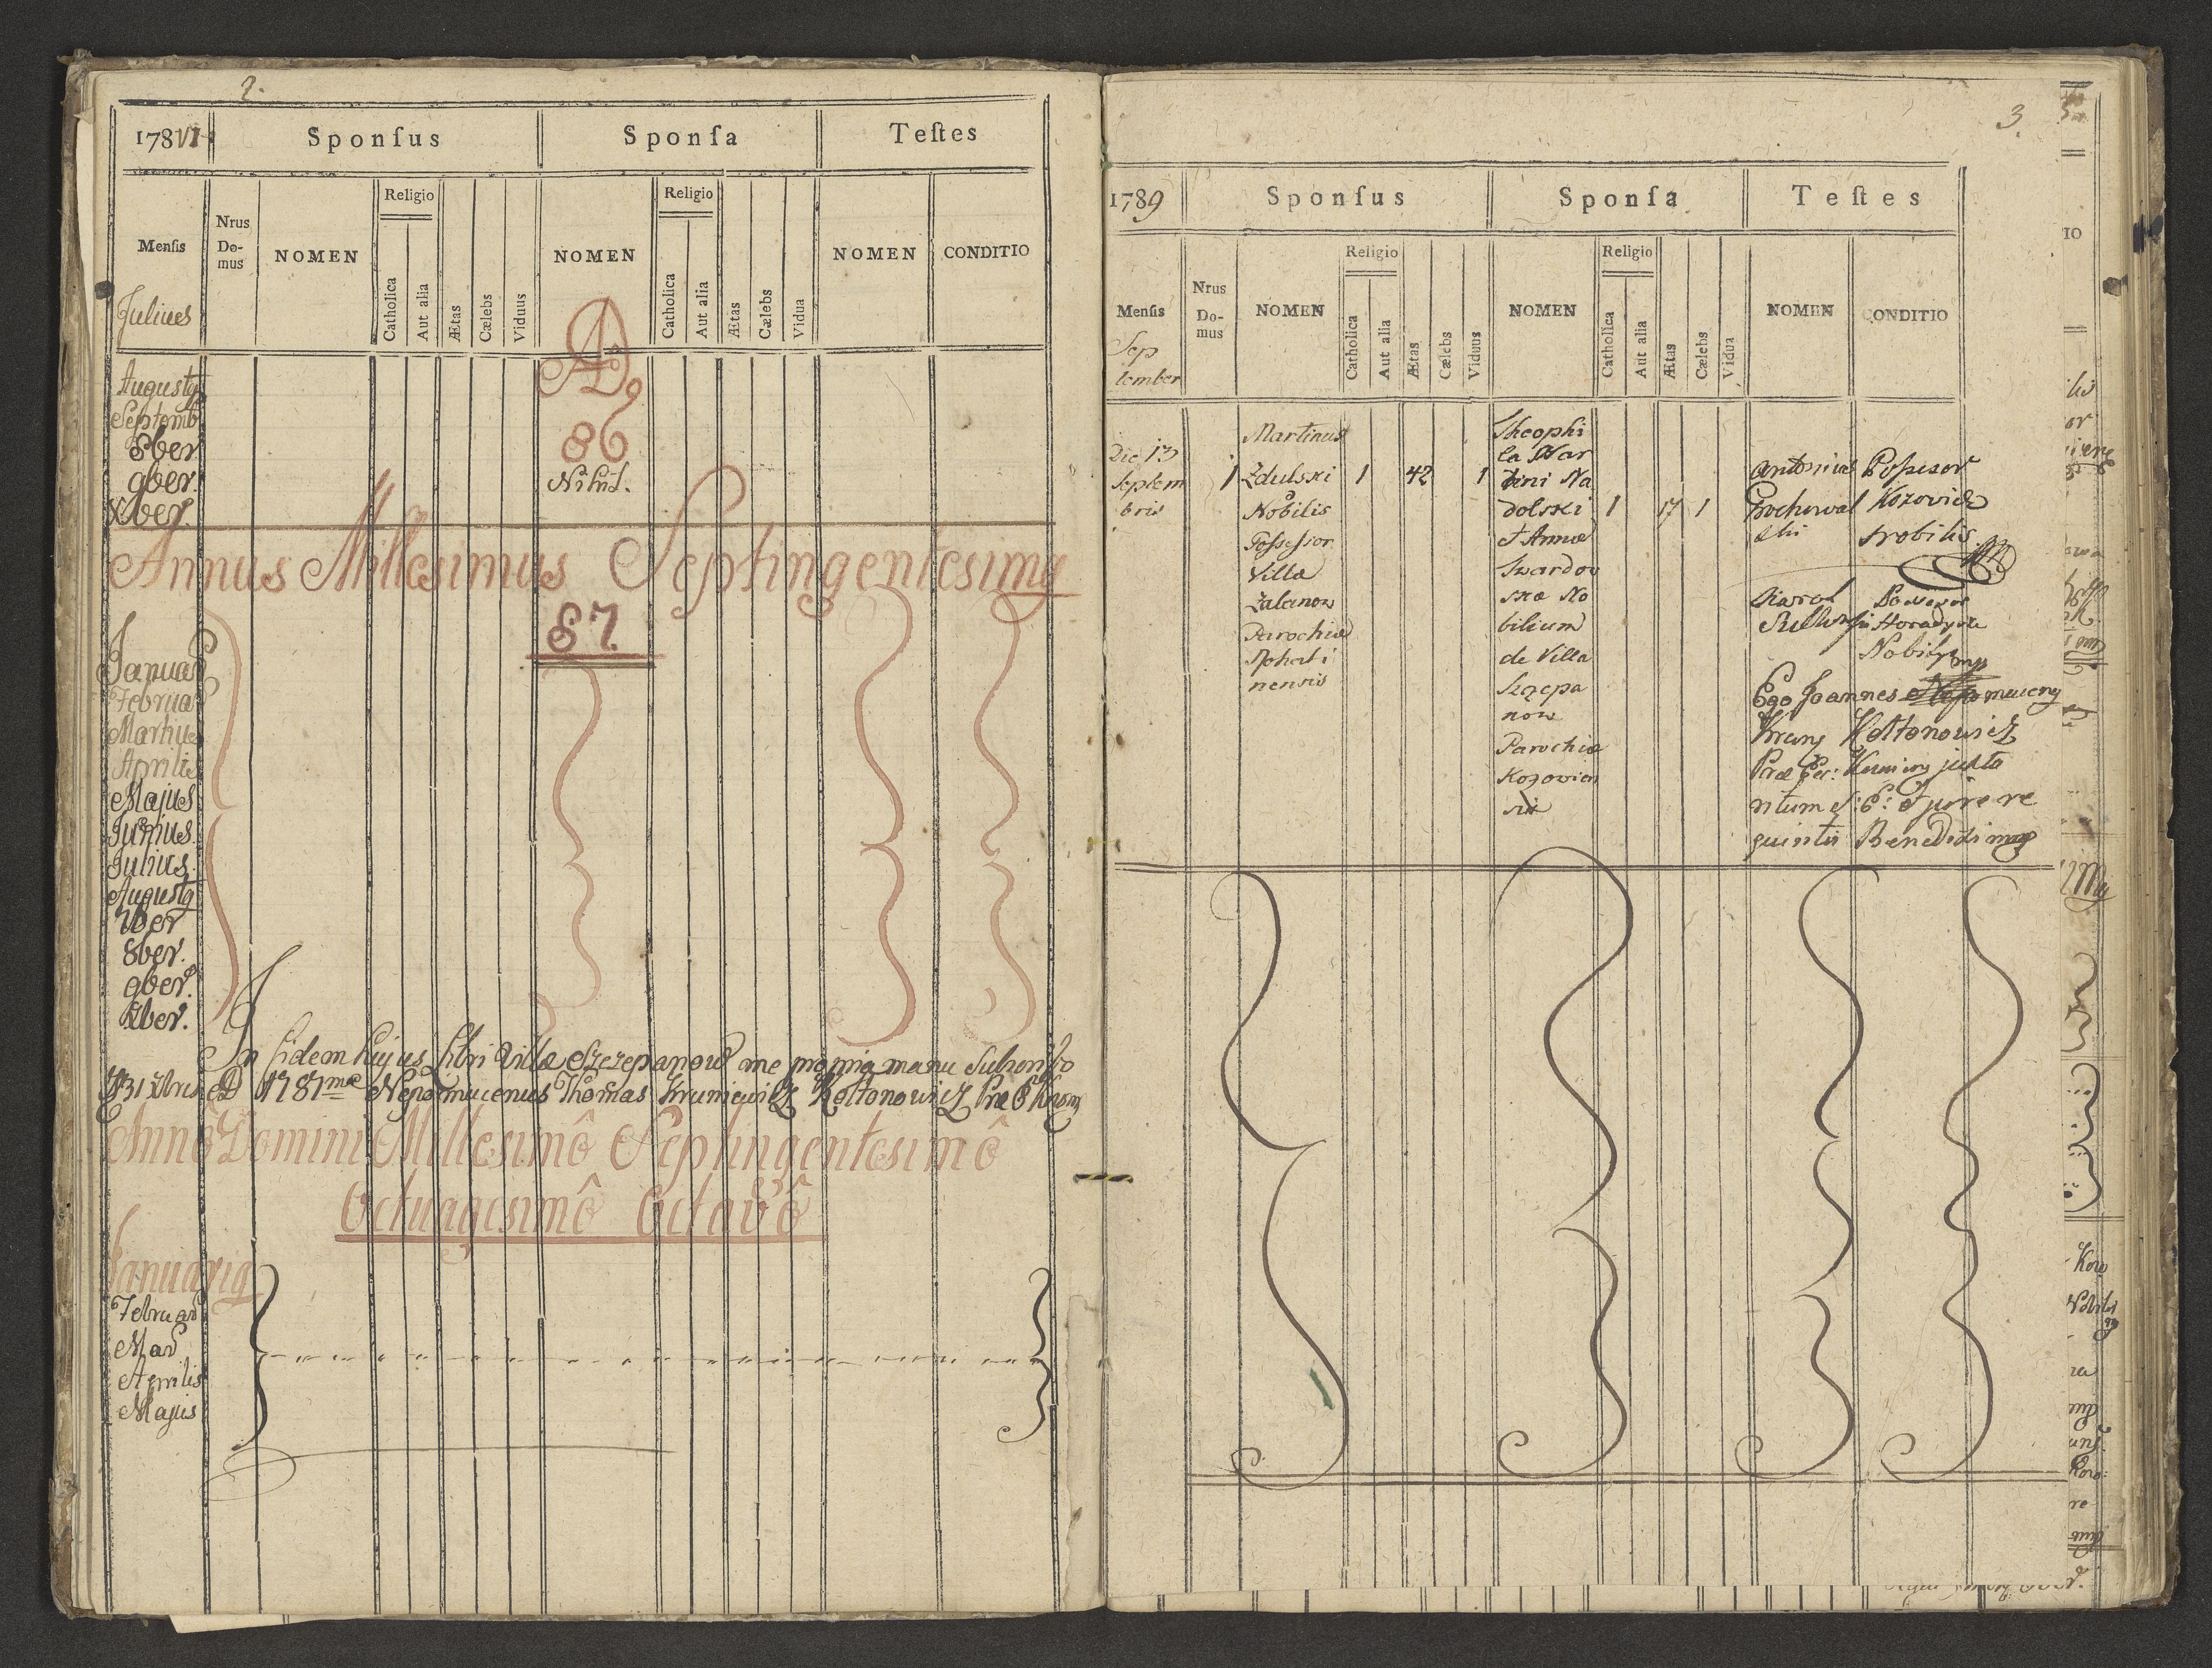 2.
178VI
Sponſus
Sponſa
Teſtes
Menſis
Nrus Do-mus
NOMEN
Religio
Catholica
Aut alia
Ætas
Cælebs
Viduus
NOMEN
Religio
Catholica
Aut alia
Ætas
Cælebs
Vidua
NOMEN
CONDITIO
Julius
Augusty
Septemb
8ber
9ber.
Xber.
AD
86
Nihil.
Annus Millesimus Septingentesimy
87.
Januar
Februar
Martius
Aprilis
Majus
Junius
Julius
Augusty
7ber
8ber.
9ber.
Xber.
In fidem hujus Libri Villæ Szczepanow me propria manu Subscribo
31 Xbris AD 1787mo Nepomucenus Thomas Krunicwicz Kottonowicz
Annô Domini Millesimô Septingentesimô
Octuagesimô Octavô
Januariy
Februar
Mar
Aprilis
Majus
3
1789
Sponſus
Sponſa
Teſtes
Menſis
Nrus Do-mus
NOMEN
Religio
Catholica
Aut alia
Ætas
Cælebs
Viduus
NOMEN
Religio
Catholica
Aut alia
Ætas
Cælebs
Vidua
NOMEN
CONDITIO
Sep
tember
Die 13
Septem
bris
1
Martinus
Zdulski
Nobilis
Possessor
Villæ
Zalanow
Parochiæ
Rohati
nensis
1
42
1
Theophi
la Mar
tini Na
dolski
et Annæ
Swardov
skæ No
bilium
de Villa
Szczepa
now
Parochiæ
Kozovien
sis
1
17
1
Antonius Possesor
Kozowicz
Nobilis
Karol
Nobily mp
Ego Joannes Nepomuceny
Kottonowicz
juxta
ritum S: E: et jure re
quisitis Benedixi mp